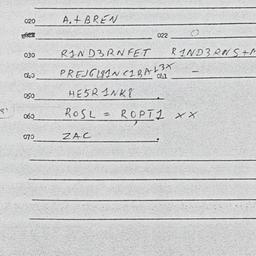 020 A.+BREN
022 0
030 R1ND3RNFET R1ND3RNS+A
040 041 -
050 HE5R1NK8 .
060 ROSL = ROPT1 xx
070 ZAC .